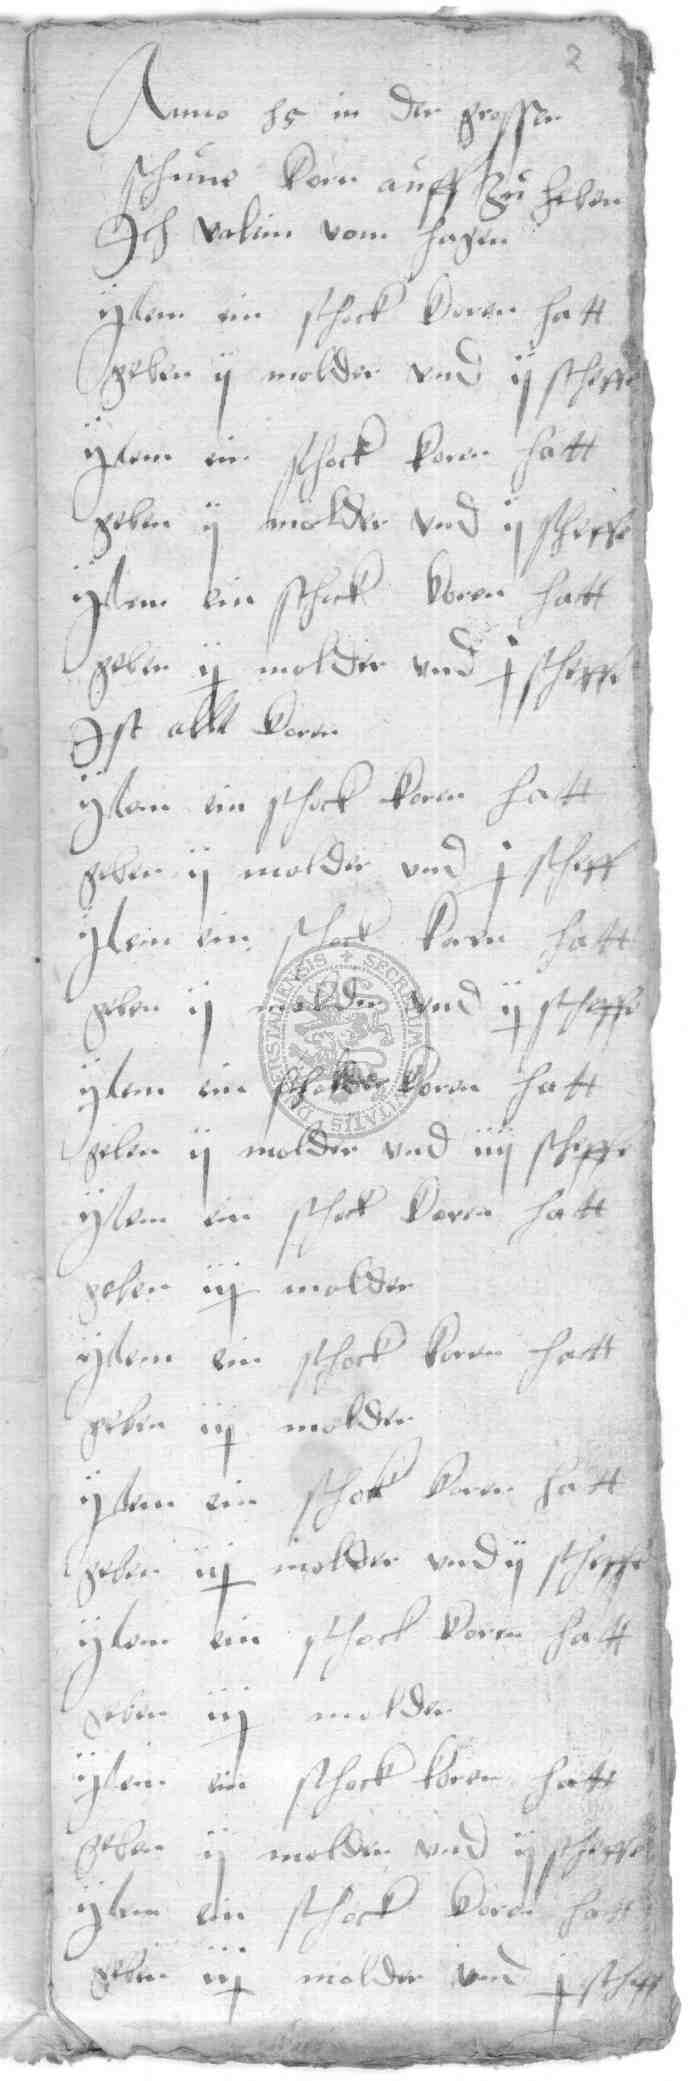 2
Anno 85 in der grosser
schune korn auff zu heben
Ich valtin vom hagen
ÿtem ein schock koren hatt
geben ij molder vnd ij scheffe
ÿtem ein schock koren hatt
geben ij molder vnd ij scheffe
ÿtem ein schock koren hatt
geben ij molder vnd j scheffe
Ist allt koren
ÿtem ein schock koren hatt
geben ij molder vnd j scheff
ÿtem ein schock korn hatt
geben ij molder vnd ij scheffe
ÿtem ein koren hatt
geben ij molder vnd iiij scheffe
ÿtem ein schock koren hatt
geben iij molder
ÿtem ein schock koren hatt
geben iij molder
ÿtem ein schok koren hatt
geben iij molder vnd ij scheffe
ÿtem ein schock koren hatt
geben iij molder
ÿtem ein schock koren hatt
geben ij molder vnd ij scheffe
ÿtem ein schock koren hatt
geben iij molder vnd j scheff
SECRETUM CIVITATIS